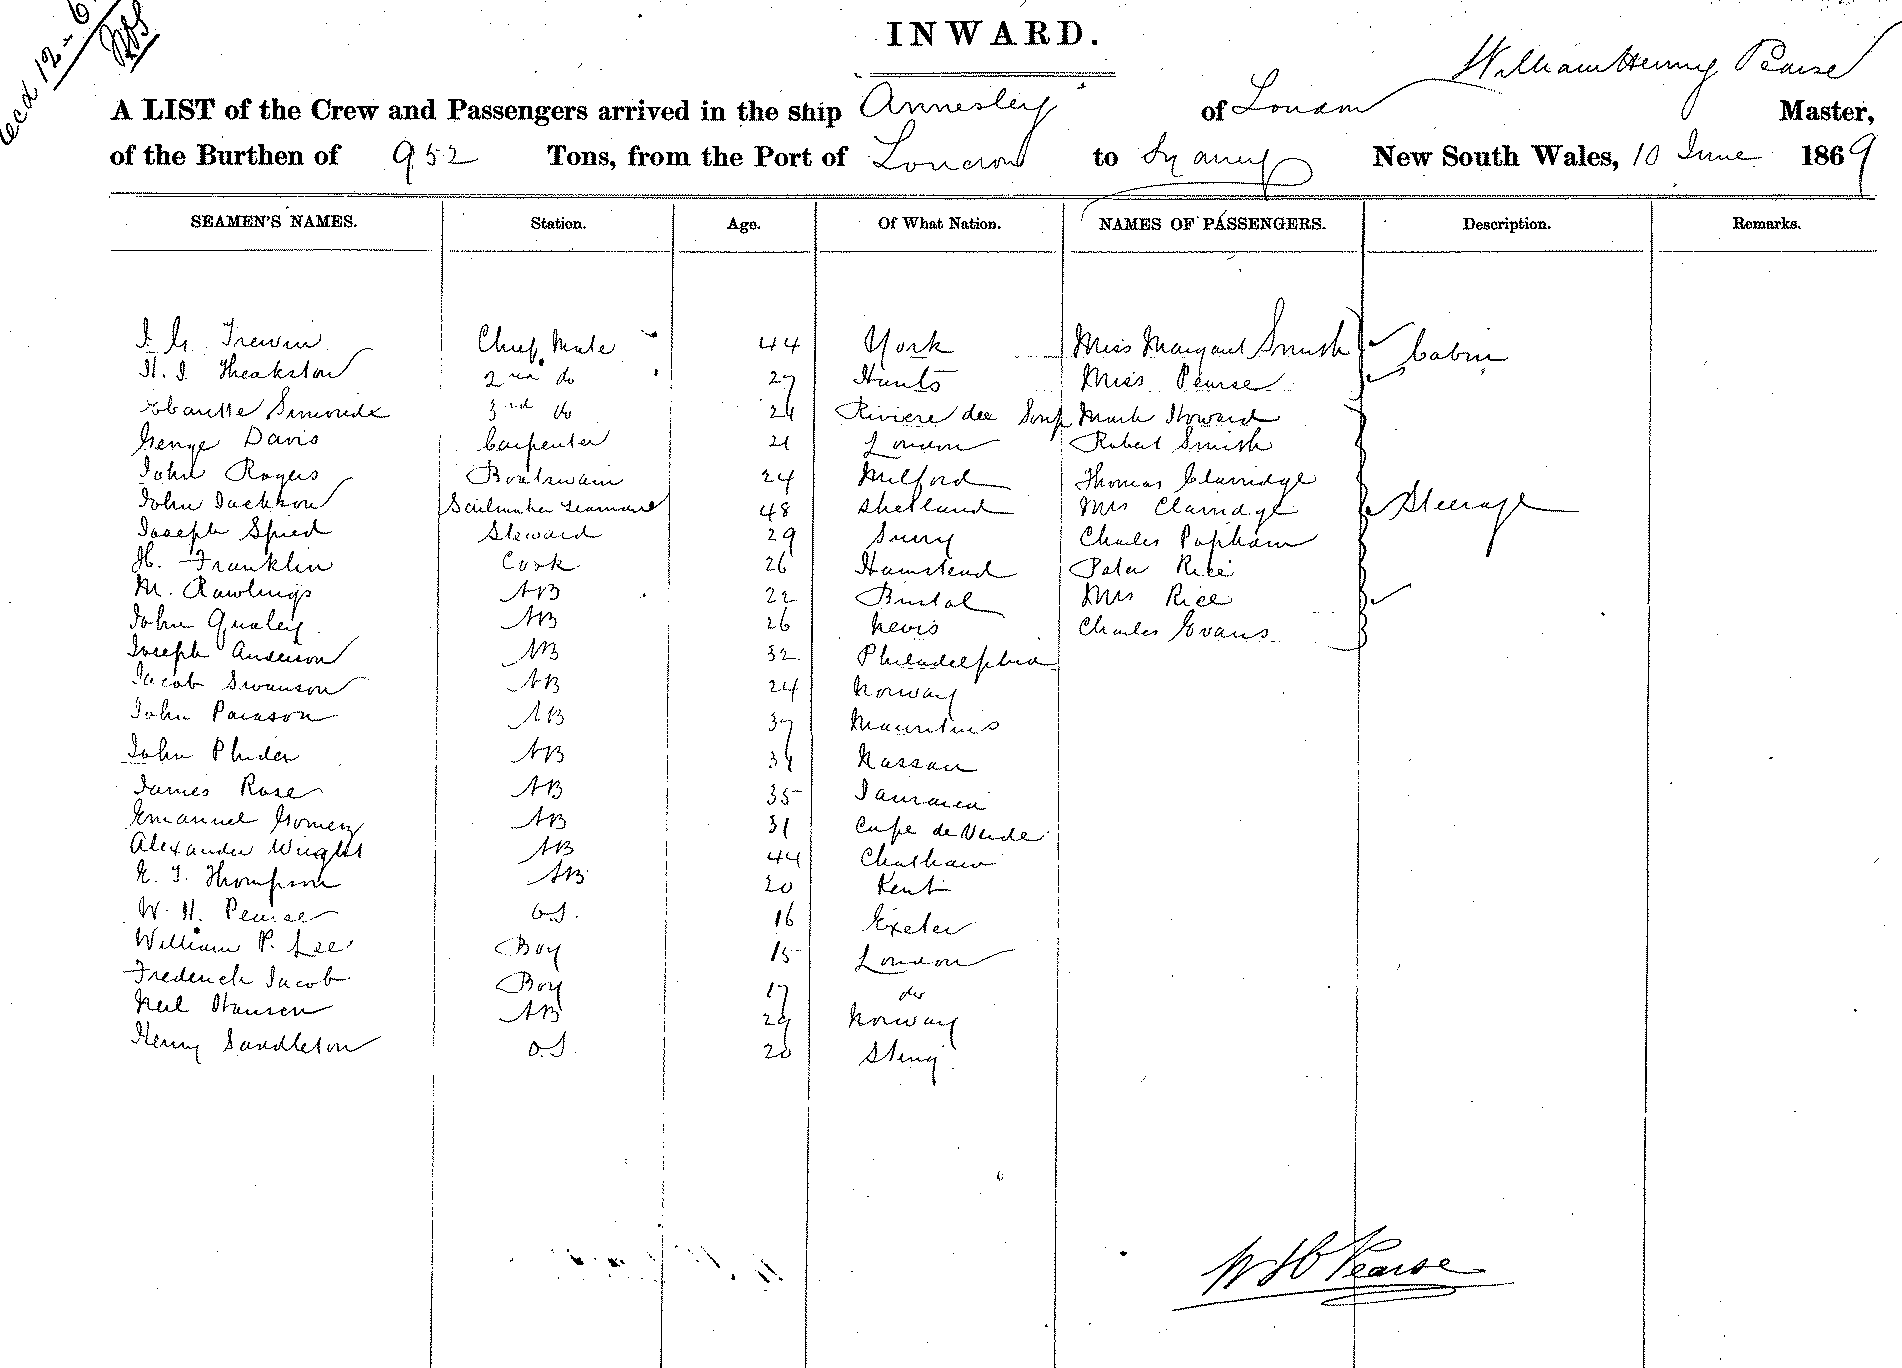 INWARD.
William Henry Pearse
A LIST of the Crew and Passengers arrived in the ship Annesley of London Master,
of the Burthen of 952 Tons, from the Port of London to Sydney New South Wales, 10 June 1869
SEAMEN'S NAMES. Station. Age. Of What Nation. NAMES OF PASSENGERS. Description. Remarks.
Trewin Chief Mate 44 York Miss Margaret Smith Cabin
Theakston 2nd do 27 Hunts Miss Pearse
Simonds 3rd do 24 Riviere Mark Howard
George Davis Carpenter 21 London Robert Smith
John Rogers Boatswain 24 Milford Thomas Clarridge
John Jackson Sailmaker Seaman 48 Shetland Mrs Clarridge Steerage
Joseph Spied Steward 29 Surry Charles Popham
H. Franklin Cook 26 Hamstead Peter Rice
M. Rawlings AB 22 Bristol Mrs Rice
John Qualey AB 26 Nevis Charles Evans
Joseph Anderson AB 32 Philadelphia
Jacob Swanson AB 24 Norway
John AB 37 Mauritius
John AB 34 Nassau
James Rose AB 35 Jamaica
Emanuel Gomez AB 31 Cape de Verde
Alexander Wright AB 44 Chatham
Thompson AB 20 Kent
W. H. Pearse O.S. 16 Exeter
William P. Lee Boy 15 London
Frederick Jacob Boy 17 do
Neil Hansen AB 29 Norway
Henry Saddleton O.S. 20
W H Pearse